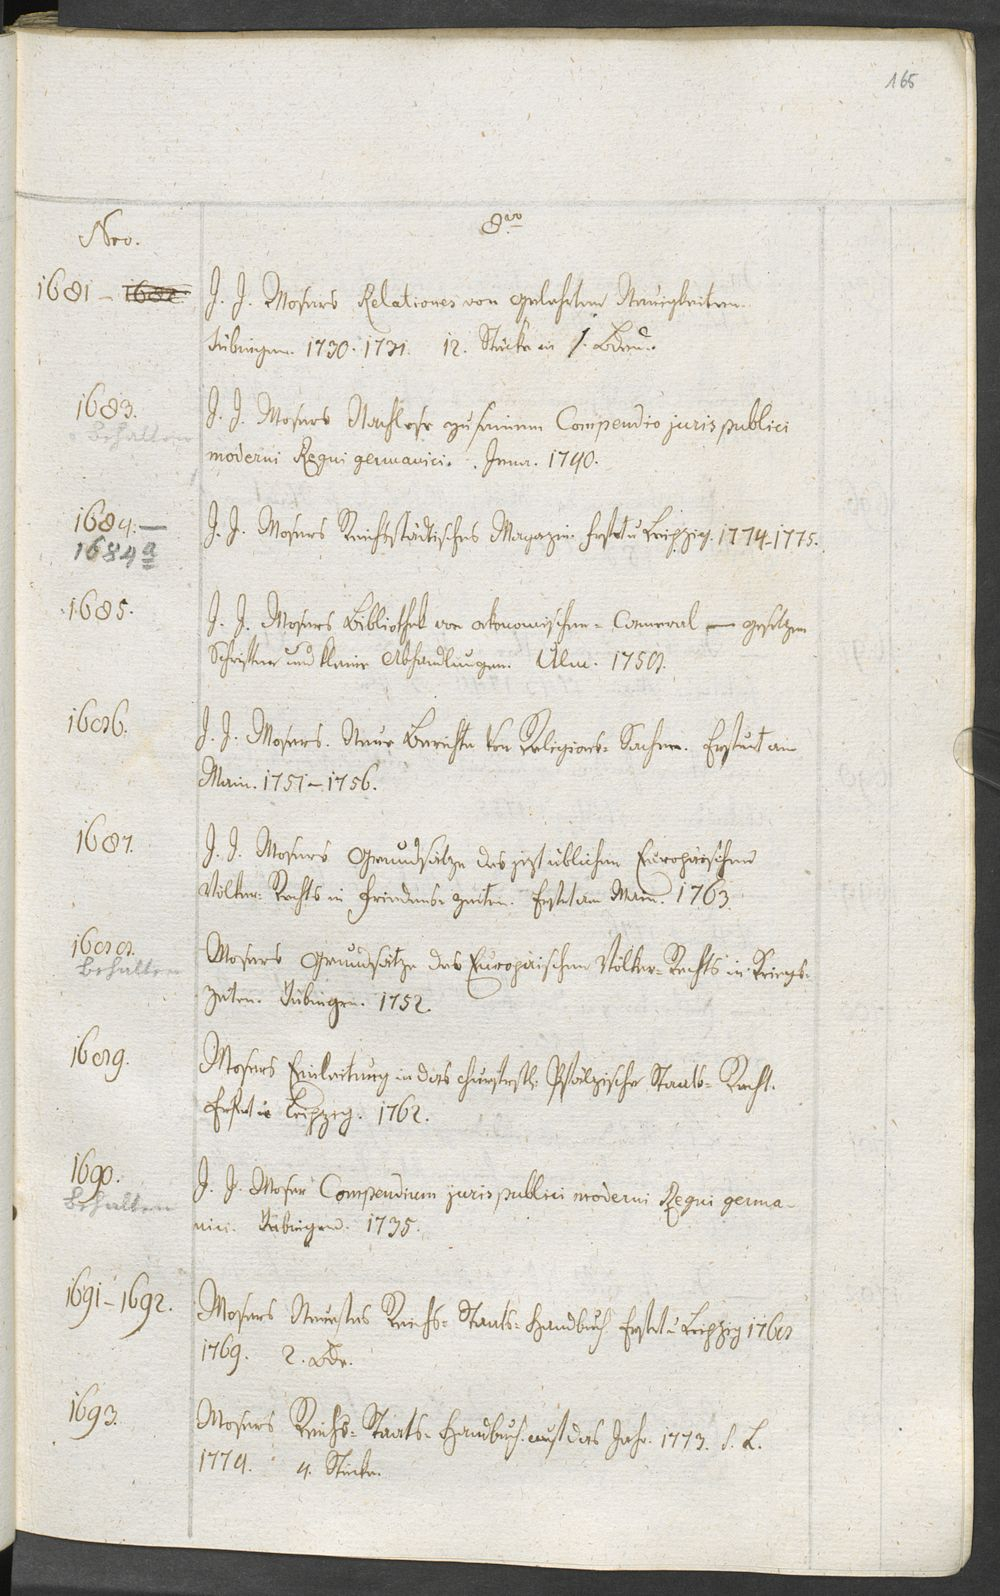 165
Nro.
8vo
1681 - 1682.
J. J. Mosers Relationes von gelehrten Neuigkeiten.
Tübingen. 1730. 1731. 12. Stücke in 1. Bden.
1683.
behalten
J. J. Mosers Nachlese zu seinem Compendio juris publici
moderni Regni germanici. Jena. 1740.
1684. —
1684 a
J. J. Mosers Reichsstädtisches Magazin. Frft u Leipzig. 1774-1775.
1685.
J. J. Mosers Bibliothek von oekonomischen- Cameral — gesetzen
Schriften und kleine Abhandlungen. Ulm. 1758.
1686.
J. J. Mosers. Neue Berichte von Religions- Sachen. Frfurt am
Main. 1751 - 1756.
1687.
J. J. Mosers Grundsätze des jezt üblichen Europäischen
Völker- Rechts in Friedens- zeiten. Frft am Main. 1763.
1688.
behalten
Mosers Grundsätze des Europäischen Völker- Rechts in Kriegs-
zeiten. Tübingen. 1752.
1689.
Mosers Einleitung in das churfrstl: Pfälzische Staats- Recht.
Frft u Leipzig. 1762.
1690.
behalten
J. J. Moser Compendium juris publici moderni Regni germa-
nici. Tübingen. 1735.
1691 - 1692.
Mosers Neuestes Reichs- Staats- Handbuch Frft u Leipzig 1768
1769. 2. Bde.
1693.
Mosers Reichs- Staats- Handbuch auf das Jahr. 1773. s. L.
1774. 4. Stücke.